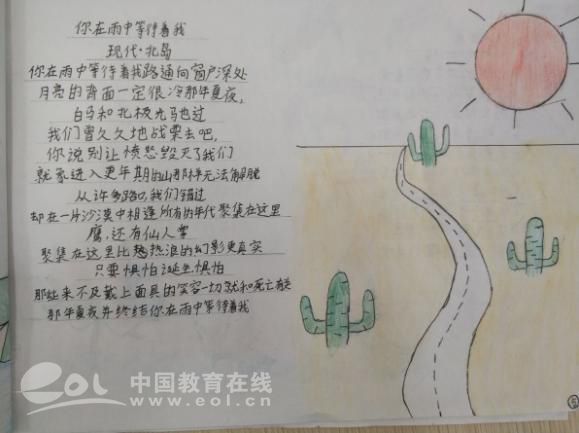 你在雨中等待着我
现代·北岛
你在雨中等待着我路通向窗户深处
月亮的背面一定很冷那年夏夜,
白马和北极光马也过
我们曾久久地战栗去吧,
你说别让愤怒毁灭了我们
就象进入更年期的山那样无法解脱
从许多路口,我们错过
却在一片沙漠中相逢所有的年代聚集在这里
鹰,还有仙人掌
聚集在这里比热浪的幻影更真实
只要惧怕诞生惧怕
那些来不及戴上面具的笑容一切就和死亡有关
那年夏夜并终结你在雨中等待着我
中国教育在线
www.eol.cn